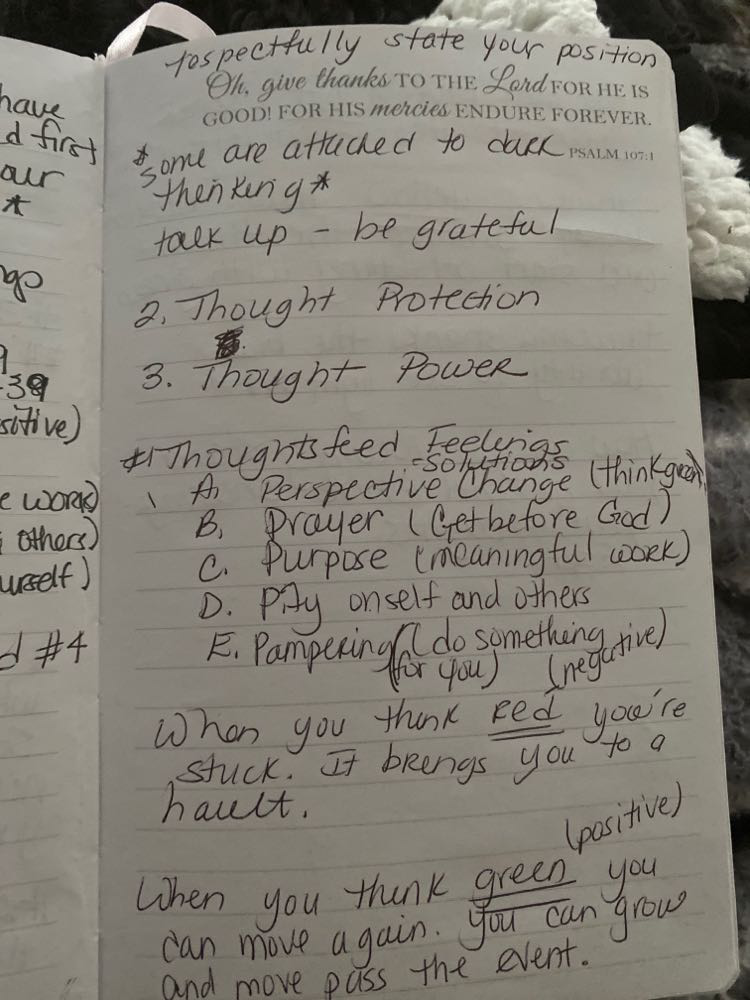 have
d first
our
*
ngo
9
-39
sitive)
e work)
others)
urself)
d #4
respectfully state your position
Oh, give thanks TO THE Lord FOR HE IS
GOOD! FOR HIS mercies ENDURE FOREVER.
PSALM 107:1
*some are attached to dark
thinking*
talk up - be grateful
2. Thought Protection
3. Thought Power
#1 Thoughts feed Feelings
-Solutions
A. Perspective Change (think green)
B. Prayer (Get before God)
C. Purpose (meaningful work)
D. Pity onself and others
E. Pampering (do something
(for you) (negative)
When you think red you're
stuck. It brings you to a
hault.
(positive)
When you think green you
can move again. You can grow
and move pass the event.